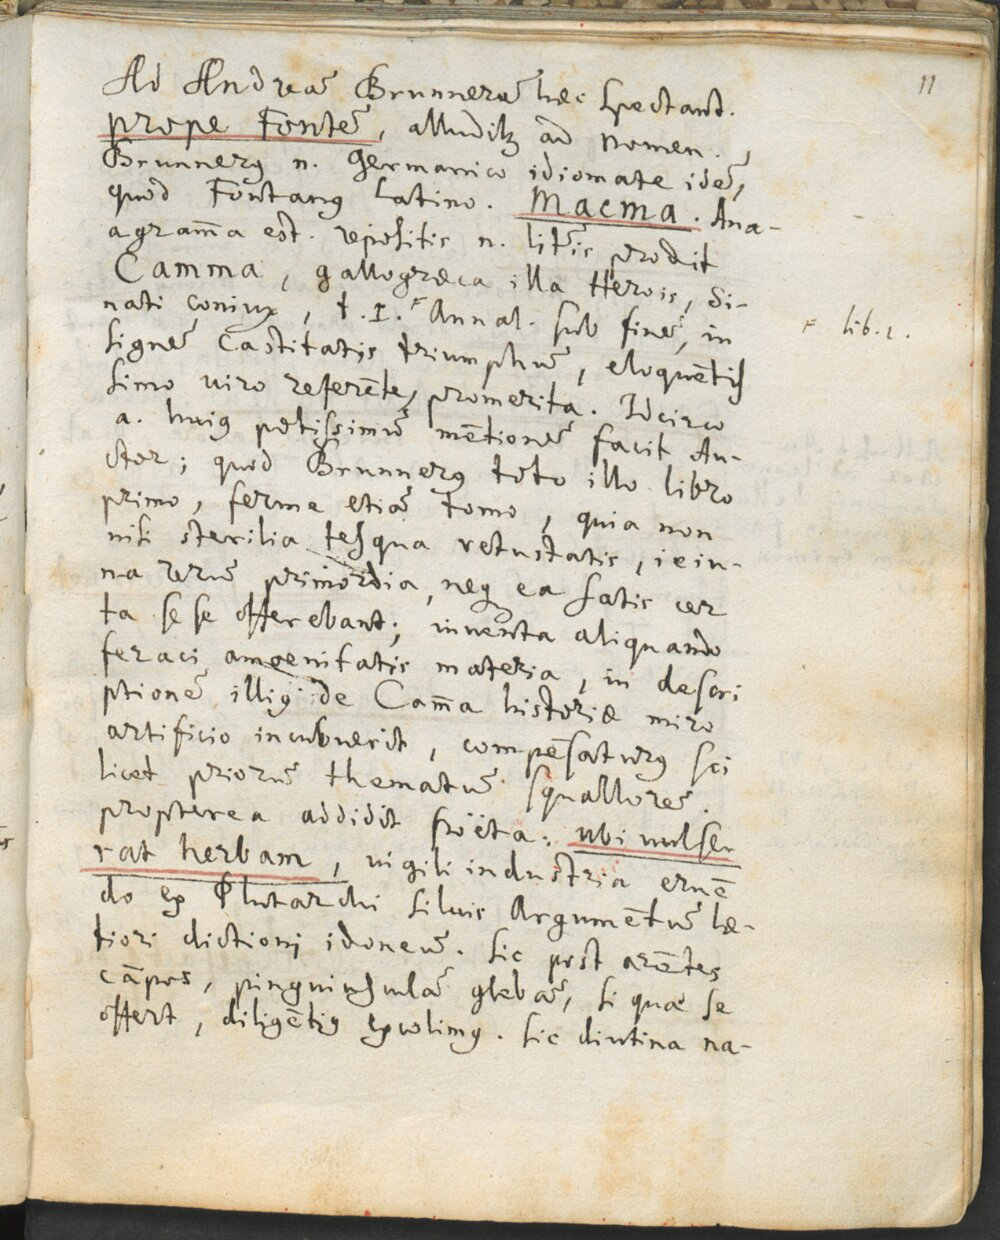 11
Ad Andreā Brunnerū hęc spectant.
prope Fontē, alludit ad nomen.
Brunnerꝰ n. Germanico idiomate idē,
quod Fontanꝰ Latino. Macma. Ana-
agram̄a est. repositis n. litīs prodit
Camma, gallogræca illa Herois, Si-
nati coniux, t. I. ꜰ Annal. sub finē, in
ꜰ Lib. 2.
signē castitatis triumphū, eloquētis
simo viro referēte, promerita. Idcirco
a. huiꝰ potissimū mētionē facit Au-
ctor; quod Brunnerꝰ toto illo libro
primo, ferme etiā Tomo, quia non
nisi sterilia tesqua vetustatis, ieiu-
na rerū primordia, neqꝫ ea satis cer
ta se se offerebant; inventa aliquando
feraci amœnitatis materia, in descri
ptionē illiꝰ de Cam̄a historiæ miro
artificio incubuerit, compēsaturꝰ sci
licet priorū thematū squallorē.
propterea addidit Poëta: ubi vulse
rat herbam, vigili industria eruē
do ex Plutarchi siluis Argumētū læ-
tiori dictioni idoneū. Sic post arētes
cāpos, pinguiusculā glebā, si qua se
offert, diligētiꝰ excolimꝰ. Sic diutina na-